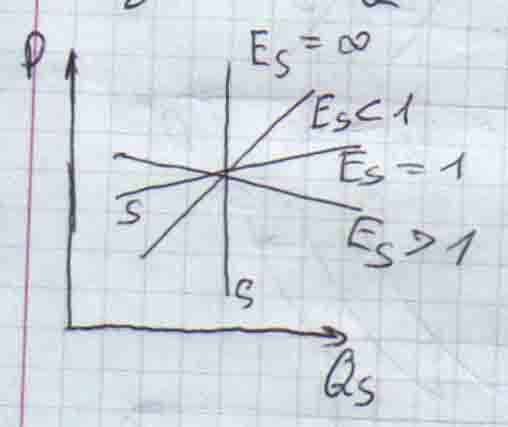 P
E_S = ∞
E_S < 1
E_S = 1
S
E_S > 1
S
Q_S